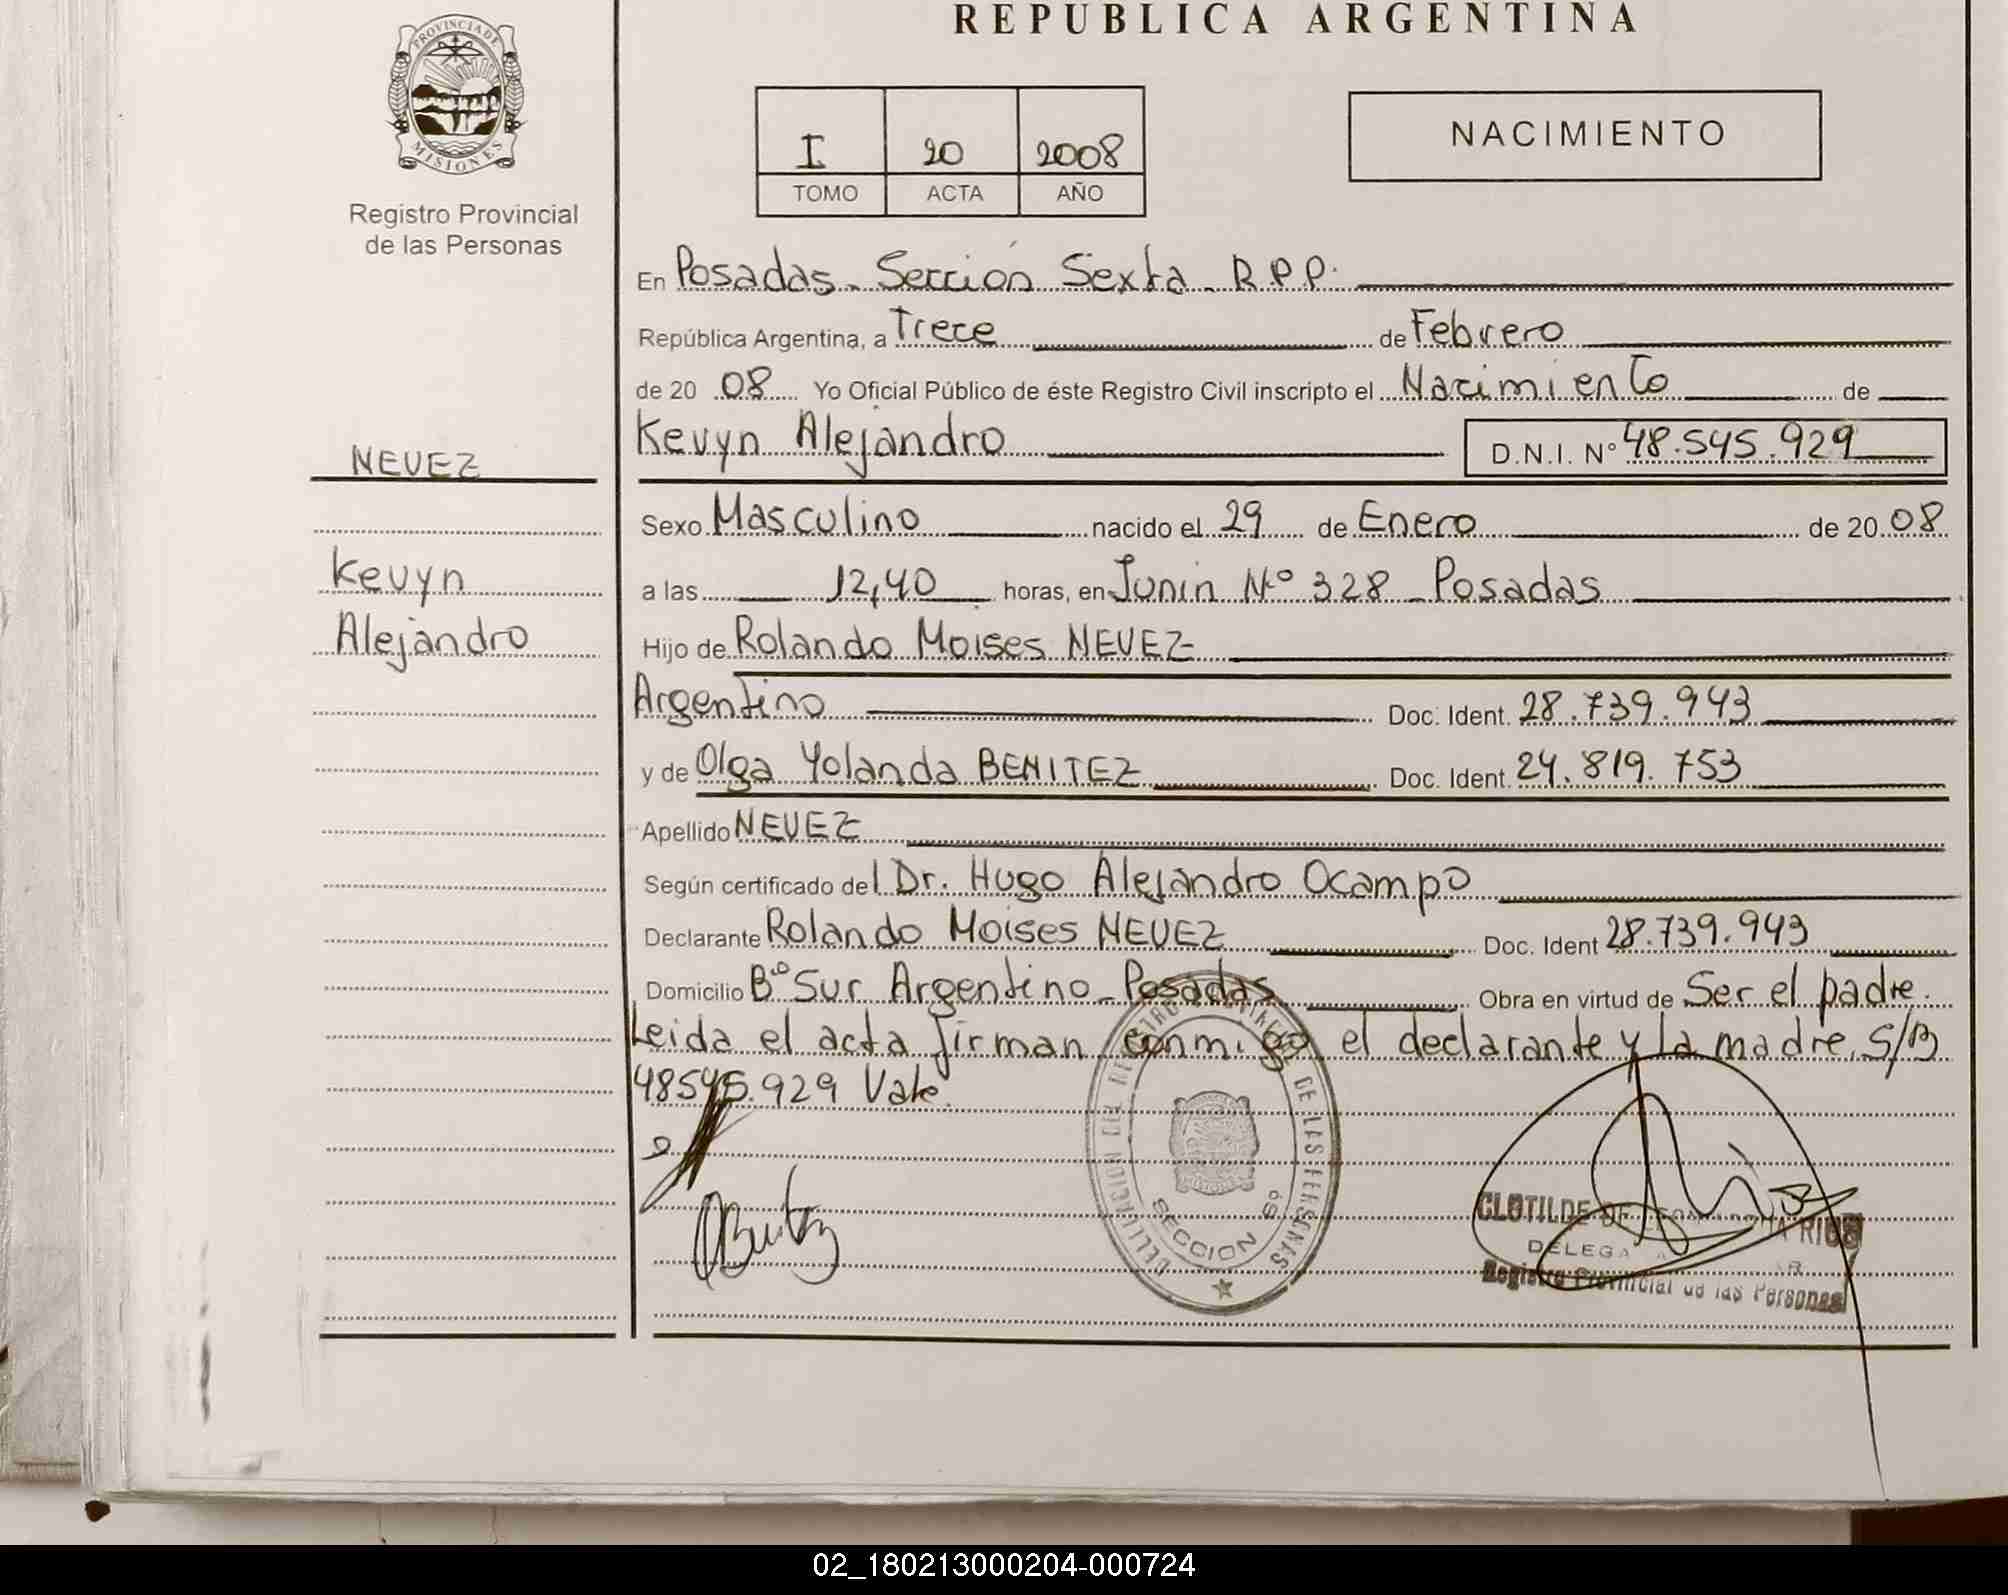 REPUBLICA ARGENTINA
PROVINCIA DE
MISIONES
Registro Provincial
de las Personas
I 20 2008
TOMO ACTA AÑO
NACIMIENTO
En Posadas. Sección Sexta. R.P.P.
República Argentina, a Trece de Febrero
de 20 08 Yo Oficial Público de éste Registro Civil inscripto el Nacimiento de
Kevyn Alejandro D.N.I. Nº 48.545.929
NEVEZ
Sexo Masculino nacido el 29 de Enero de 20 08
Kevyn
a las 12,40 horas, en Junin Nº 328 - Posadas
Alejandro
Hijo de Rolando Moises NEVEZ
Argentino Doc. Ident. 28.739.943
y de Olga Yolanda BENITEZ Doc. Ident. 24.819.753
Apellido NEVEZ
Según certificado del Dr. Hugo Alejandro Ocampo
Declarante Rolando Moises NEVEZ Doc. Ident 28.739.943
Domicilio Bº Sur Argentino - Posadas Obra en virtud de Ser el padre.
Leida el acta firman conmigo el declarante y la madre. S/B
48545.929 Vale.
DE LAS PERSONAS
SECCION 6º
CLOTILDE
Registro Provincial de las Personas
02_180213000204-000724